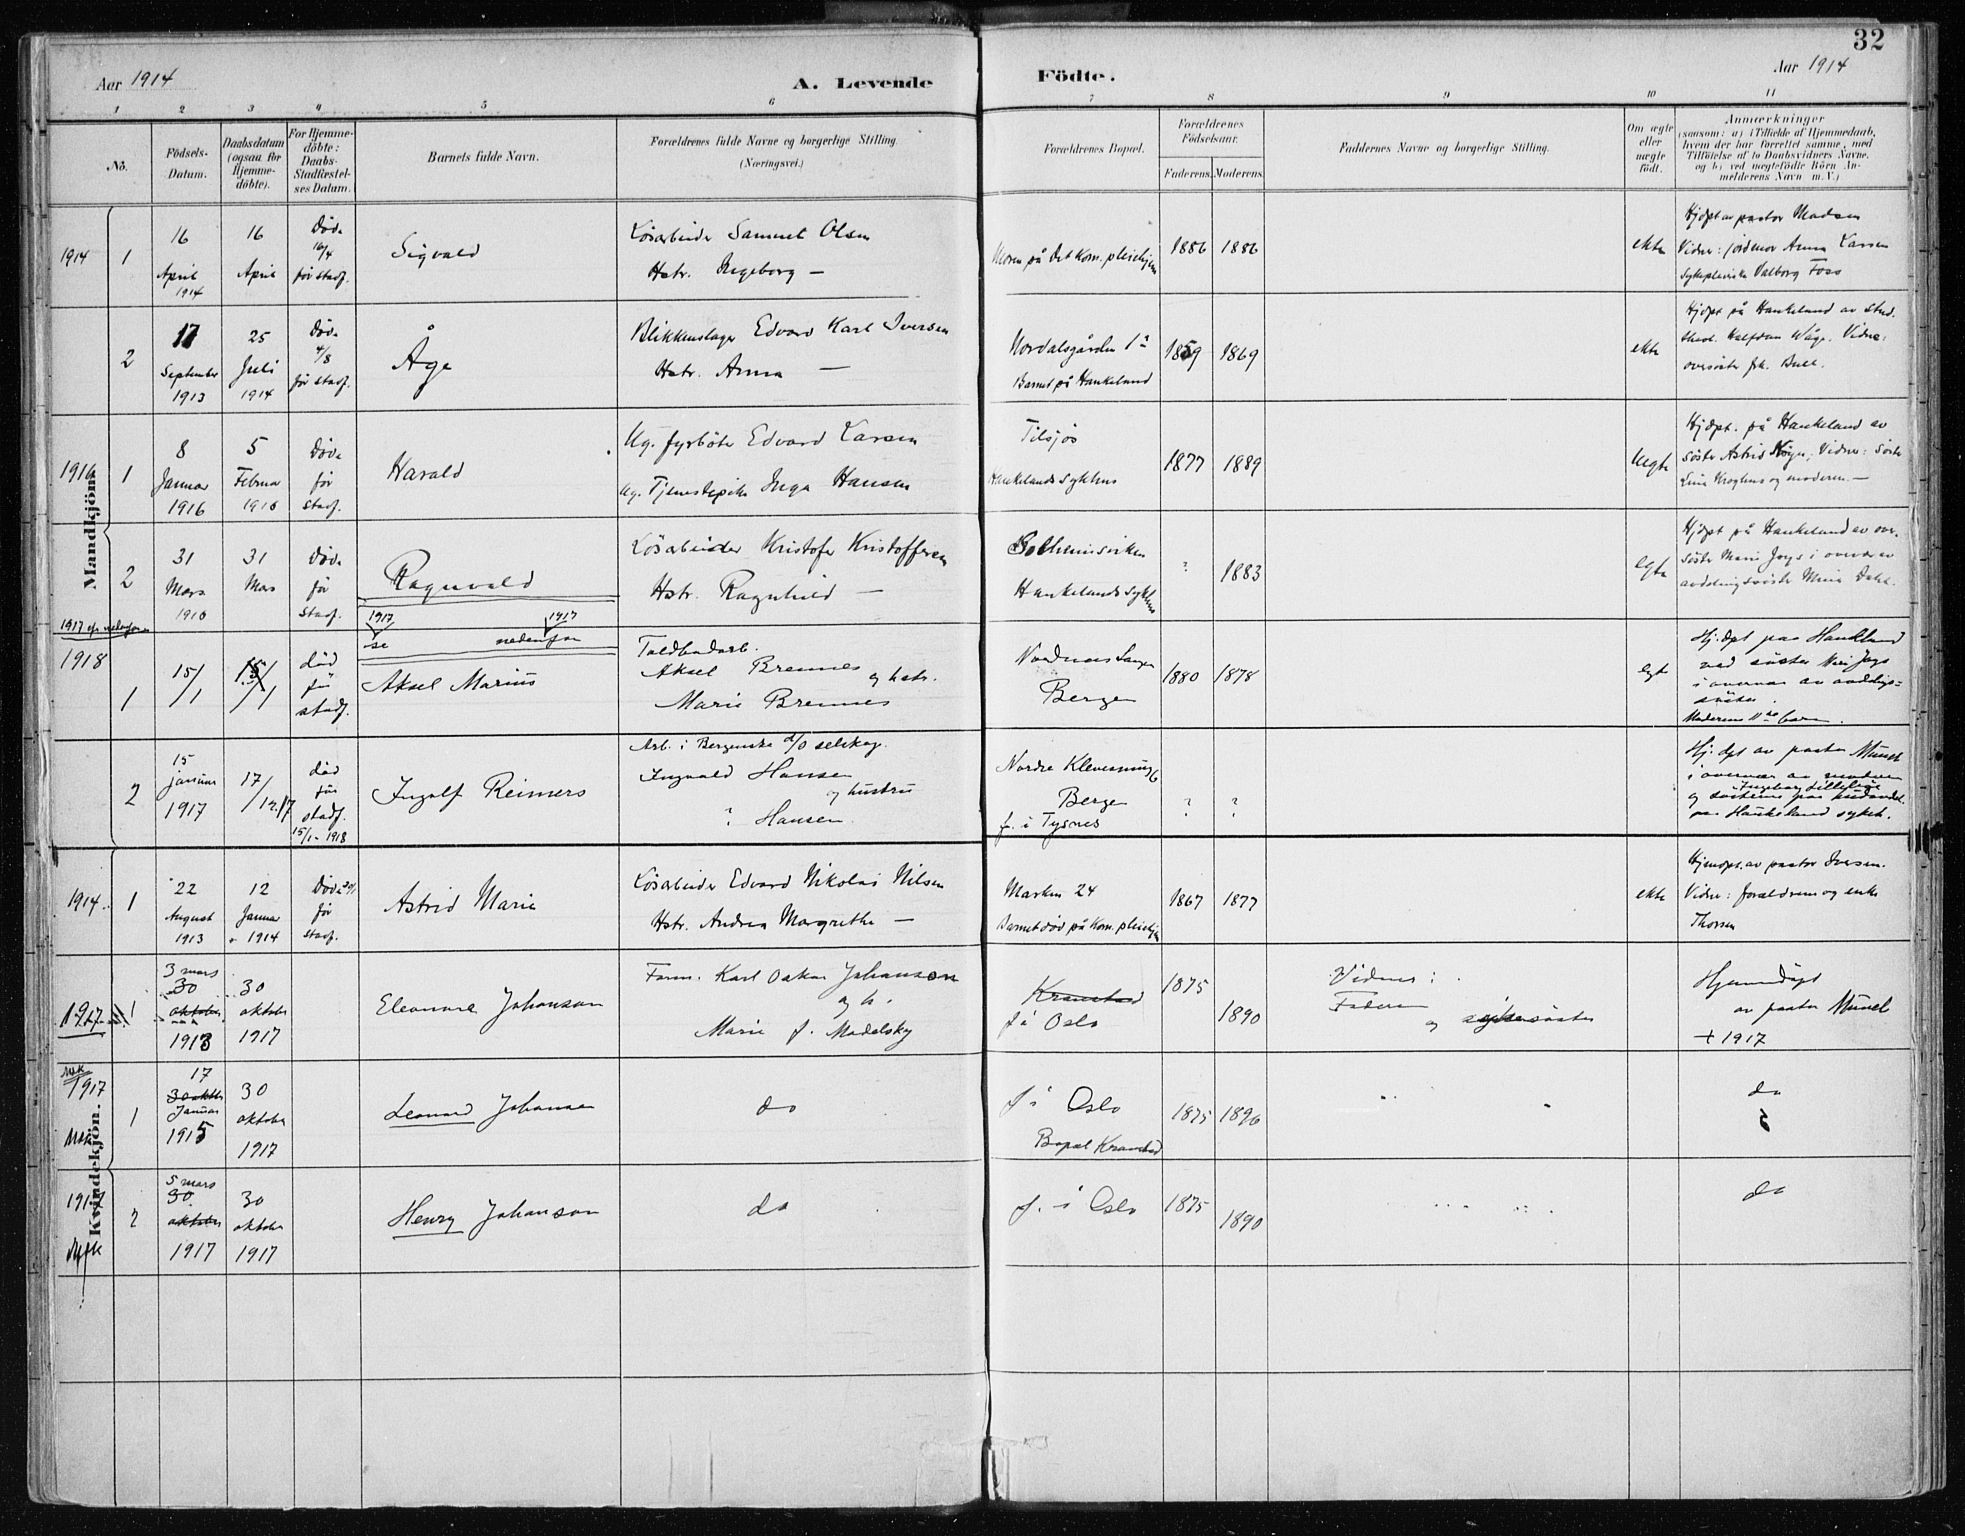 32
Aar 1914
A. Levende
Födte.
Aar 1914
1 2 3 4 5 6 7 8 9 10 11
No.
Födsels-
Datum.
Daabsdatum
(ogsaa for
Hjemme-
döbte).
For Hjemme-
döbte:
Daabs-
Stadfæstel-
ses Datum.
Barnets fulde Navn.
Forældrenes fulde Navne og borgerlige Stilling.
(Næringsvei.)
Forældrenes Bopæl.
Forældrenes
Födselsaar.
Faderens. Moderens.
Faddernes Navne og borgerlige Stilling.
Om ægte
eller
uægte
födt.
Anmærkninger
(saasom: a) i Tilfælde af Hjemmedaab,
hvem der har forrettet samme, med
Tilföielse af to Daabsvidners Navne,
og b) ved uægtefödte Börn An-
melderens Navn m. V.)
Mandkjön.
1914
1
16
April
1914
16
April
Död
16/4
før stadf.
Sigvald
Løsarbeider Samuel Olsen
Hstr. Ingeborg —
Moren på Det kom. pleiehjem
1886 1886
ekte
Hjdøpt av pastor Madsen
Vidner: jordmor Anna Larsen
sykepleierske Valborg Foss
2
17
September
1913
25
Juli
1914
Död
4/8
før stadf.
Åge
Blikkenslager Edvard Karl Iversen
Hstr. Anna —
Nordalsgården 1a
Barnet på Haukeland
1859 1869
ekte
Hjdøpt på Haukeland av stud.
theol. Halfdan Wåge. Vidne:
oversøster frk. Bull.
1916
1
8
Januar
1916
5
Februar
1916
Død
før
stadf.
Harald
Ug. fyrbøter Edvard Larsen
Ug. Tjenestepike Inga Hansen
Haukelands sykehus
1877 1889
Uegte
Hjdøpt. på Haukeland av
søster Astrid Vidner: søster
og moderen.—
2
31
Mars
1916
31
Mars
Død
før
stadf.
Ragnvald
Løsarbeider Kristofer Kristoffersen
Hstr. Ragnhild —
Solheimsviken
Haukelands sykehus
? 1883
Egte
Hjdøpt på Haukeland av over-
søster Marie i overvær av
avdelingssøster
1917 se nedenfor
1917 1917
se nedenfor
1918
1
15/1
15/1
død
før
stadf.
Aksel Marius
Toldbodarb.
Aksel Brennes
og hstr.
Marie Brennes
Nordnes
Bergen
1880 1878
egt
Hj. dpt paa Haukland
ved søster
i overvær av avdelings-
søster.
Moderens 11te barn.
2
15
januar
1917
17/12.17
død
før
stadf.
15/1 - 1918
Ingolf Reimers
Arb. i Bergenske d/s selskap.
Ingvald Hansen
og hustru
? Hansen
Nordre Kleven
Bergen
f. i Tysnes
? ?
Hj. dpt av pastor
i overvær av moderen
paa Haukeland sykeh.
Kvindekjön.
1914
1
22
August
1913
12
Januar
1914
Død
før
stadf.
Astrid Marie
Løsarbeider Edvard Nikolai Nilsen
Hstr. Andrea Margrethe —
Marken 24
Barnet død på Kom. pleiehjem
1867 1877
ekte
Hjemdpt. av pastor Iversen.
Vidne: forældrene og enke
Thorsen
1917
1
3 mars
30
oktober
1913
30
oktober
1917
Eleonore Johanson
Form. Karl Oskar Johanson
og h.
Marie f. Madelsky
f i Oslo
1875 1890
Vidner:
Faderen
og søster
Hjemmedøpt
av pastor
+ 1917
1917
1
17
30 oktober
Januar
1915
30
oktober
1917
Leonard Johanson
do
f i Oslo
Bopæl
1875 1896
do
1917
2
5 mars
30
oktober
1917
30
oktober
1917
Henry Johanson
do
f. i Oslo
1875 1890
do